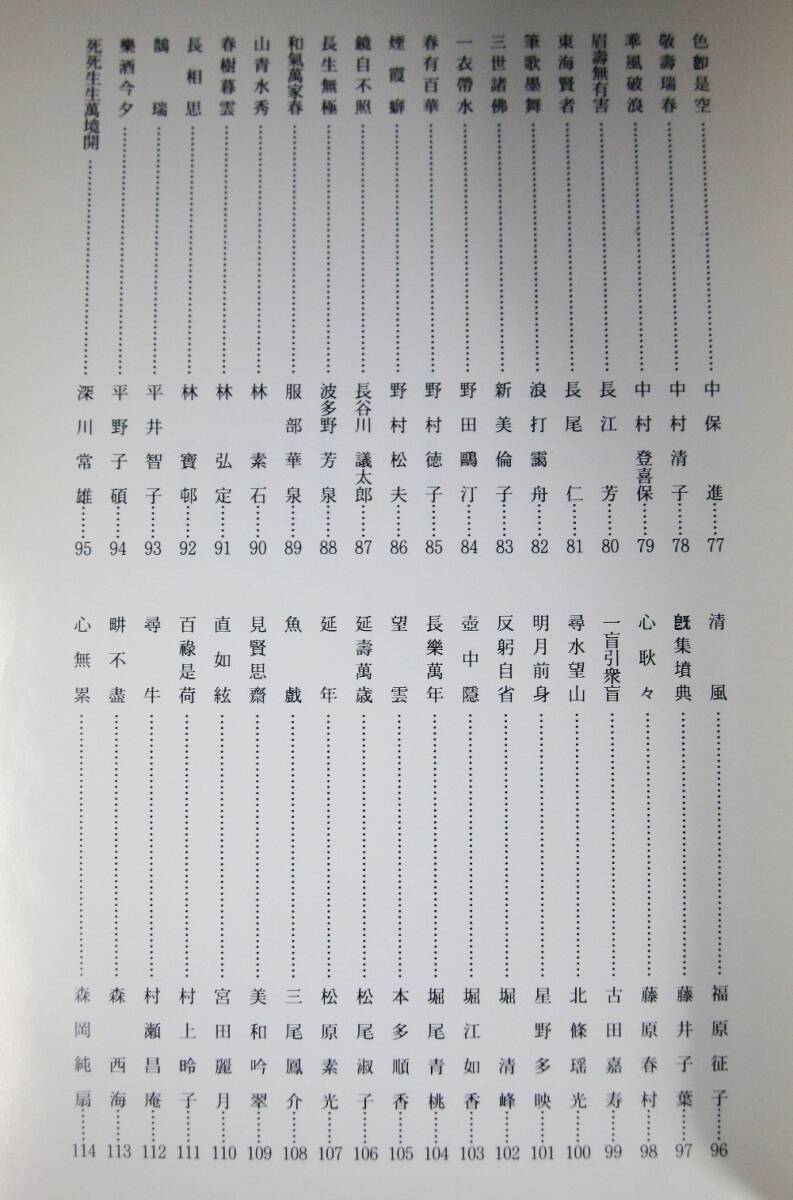 色卽是空……中保進……77
敬壽瑞春……中村清子……78
乖風破浪……中村登喜保……79
眉壽無有害……長江芳……80
東海賢者……長尾仁……81
筆歌墨舞……浪打靄舟……82
三世諸佛……新美倫子……83
一衣帶水……野田鷗汀……84
春有百華……野村徳子……85
煙霞癖……野村松夫……86
鏡自不照……長谷川議太郎……87
長生無極……波多野芳泉……88
和氣萬家春……服部華泉……89
山青水秀……林素石……90
春樹暮雲……林弘定……91
長相思……林寶邨……92
鵲瑞……平井智子……93
樂酒今夕……平野子碩……94
死死生生萬境開……深川常雄……95
清風……福原征子……96
既集墳典……藤井子葉……97
心耿々……藤原春村……98
一盲引衆盲……古田嘉寿……99
尋水望山……北條瑶光……100
明月前身……星野多映……101
反躬自省……堀清峰……102
壺中隠……堀江如香……103
長樂萬年……堀尾青桃……104
望雲……本多順香……105
延壽萬歳……松尾淑子……106
延年……松原素光……107
魚戲……三尾鳳介……108
見賢思齋……美和吟翠……109
直如絃……宮田麗月……110
百祿是荷……村上晗子……111
尋牛……村瀬昌庵……112
畊不盡……森西海……113
心無累……森岡純扇……114